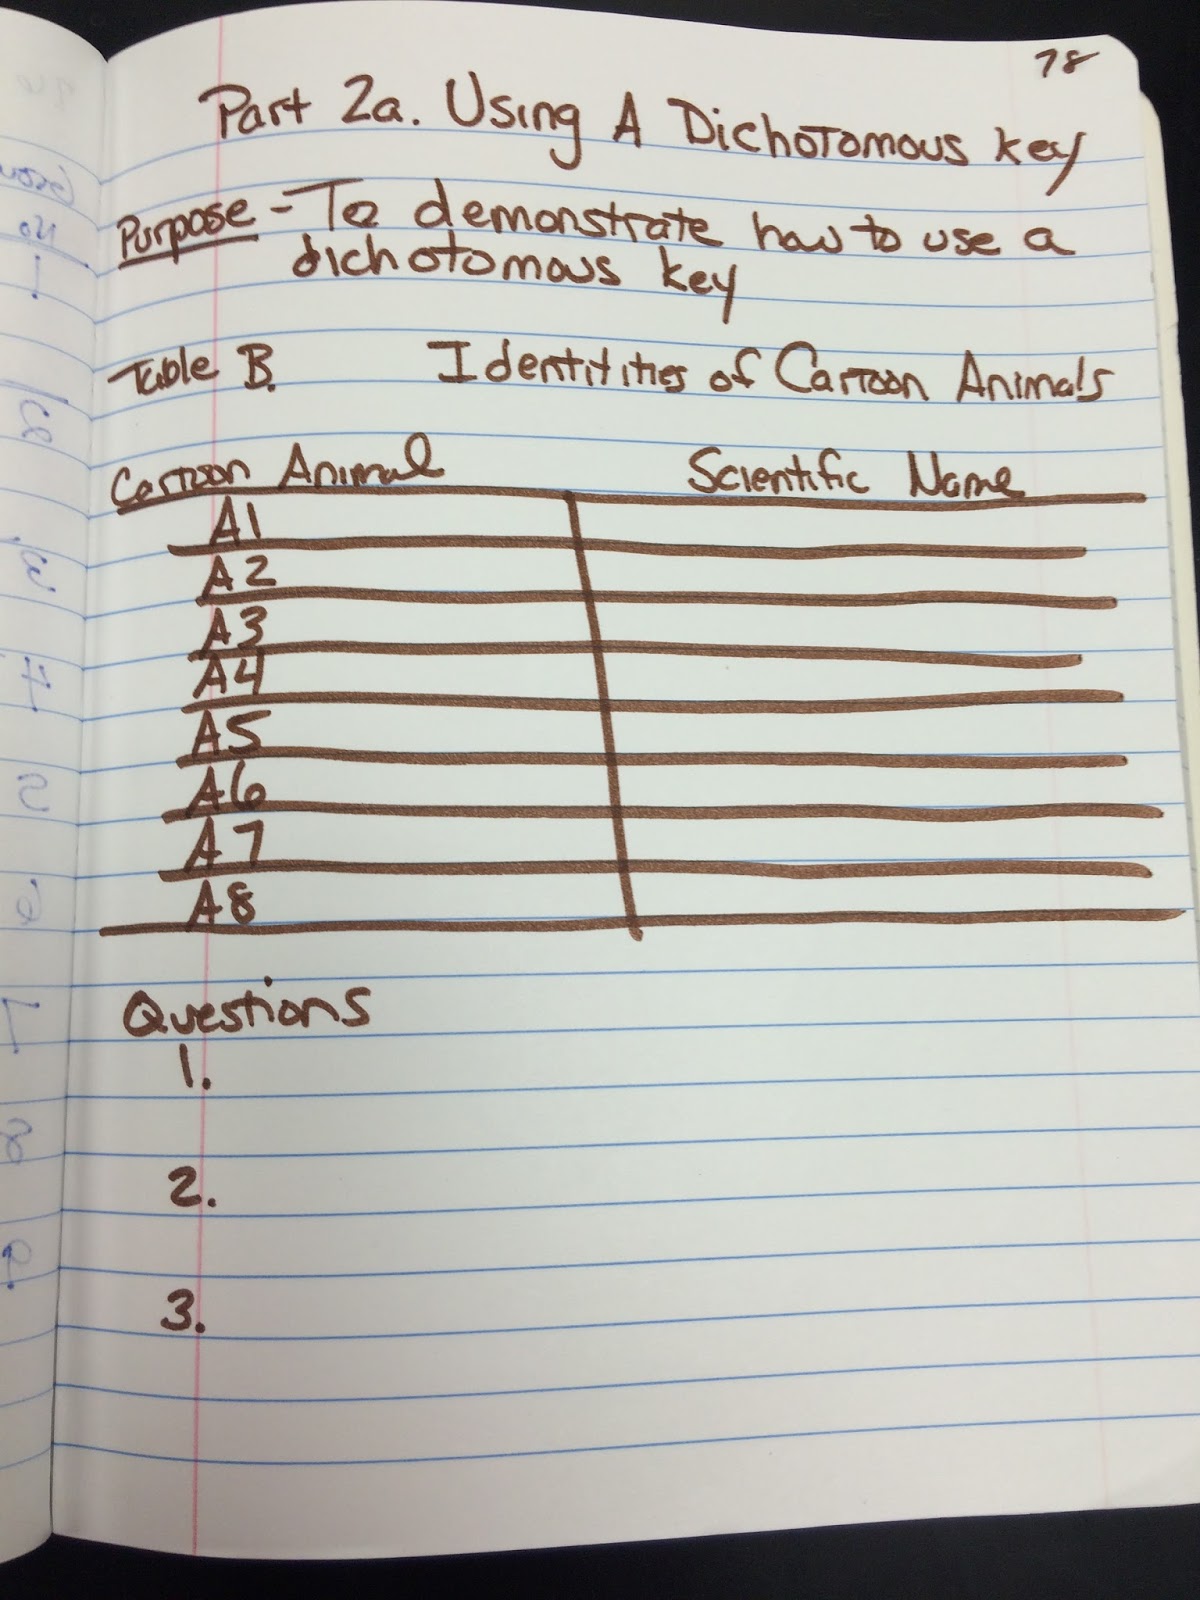 78
Part 2a. Using A Dichotomous key
Purpose - To demonstrate how to use a
dichotomous key
Table B. Identitities of Cartoon Animals
Cartoon Animal Scientific Name
A1
A2
A3
A4
A5
A6
A7
A8
Questions
1.
2.
3.